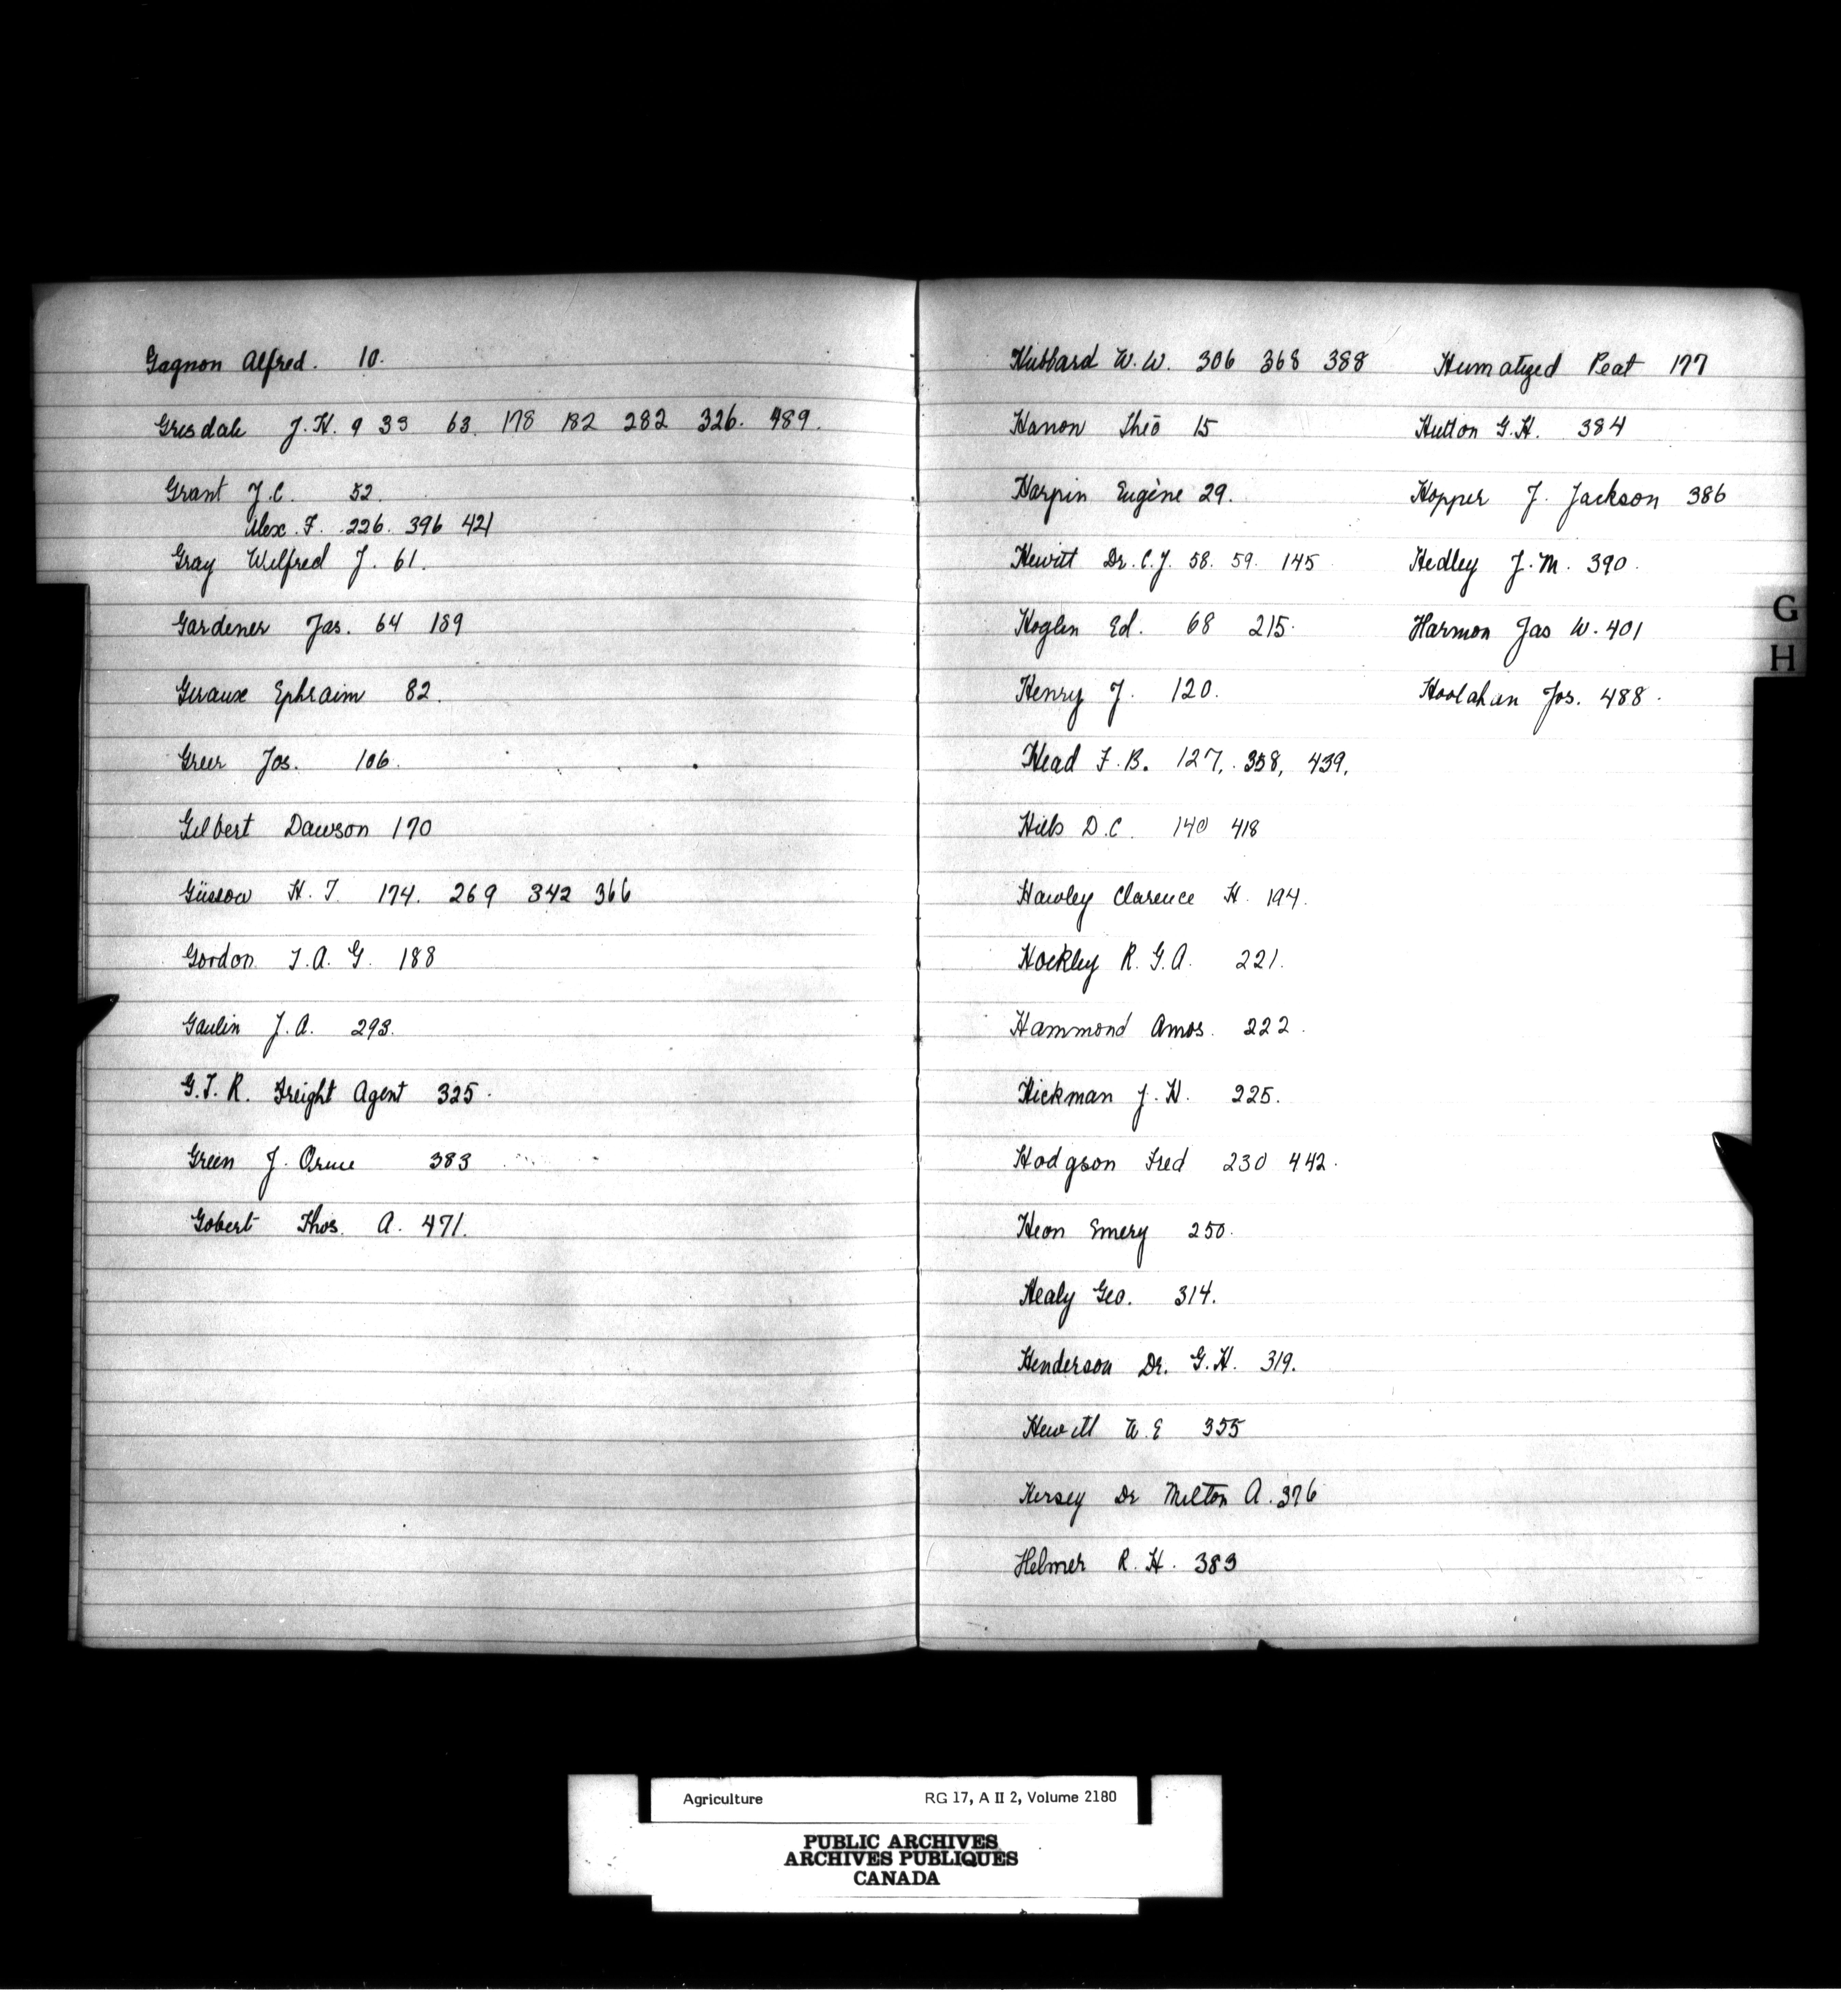 Gagnon Alfred. 10.
Grisdale J.H. 9 33 63. 178 182 282 326. 489.
Grant J.C. 52.
Alex. F. 226. 396 421
Gray Wilfred J. 61.
Gardener Jas. 64 189
Giraux Ephraim 82.
Greer Jos. 106.
Gilbert Dawson 170
Güssow H. T. 174. 269 342 366
Gordon T. A. G. 188
Gaulin J. A. 293.
G. T. R. Freight Agent 325.
Green J. Orme 383
Gobert Thos. A. 471.
Hubbard W. W. 306 368 388
Hanon Théo 15
Harpin Eugène 29.
Hewitt Dr. C. J. 58. 59. 145
Hoglen Ed. 68 215.
Henry J. 120.
Head F. B. 127, 358, 439.
Hills D. C. 140 418
Hawley Clarence H. 194.
Hockley R. G. A. 221.
Hammond Amos. 222.
Hickman J. H. 225.
Hodgson Fred 230 442.
Heon Emery 250.
Healy Geo. 314.
Henderson Dr. G. H. 319.
Hewitt W. E 355
Hersey Dr Milton A. 376
Helmer R. H. 383
Humatized Peat 177
Hutton G. H. 384
Hopper J. Jackson 386
Hedley J. M. 390.
Harmon Jas W. 401
Hoolahan Jos. 488.
G
H
Agriculture RG 17, A II 2, Volume 2180
PUBLIC ARCHIVES
ARCHIVES PUBLIQUES
CANADA